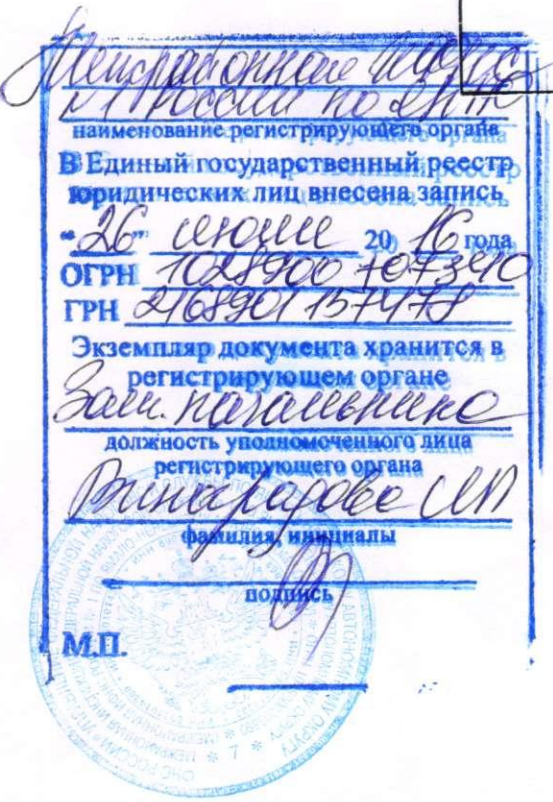 Межрайонная ИФНС
№1 России по ЯНАО
наименование регистрирующего органа
В Единый государственный реестр
юридических лиц внесена запись
"26" июля 2016 года
ОГРН 1028900707390
ГРН 2168901157478
Экземпляр документа хранится в
регистрирующем органе
Зам. начальника
должность уполномоченного лица
регистрирующего органа
Виноградова
фамилия, инициалы
подпись
М.П.
* 7 *